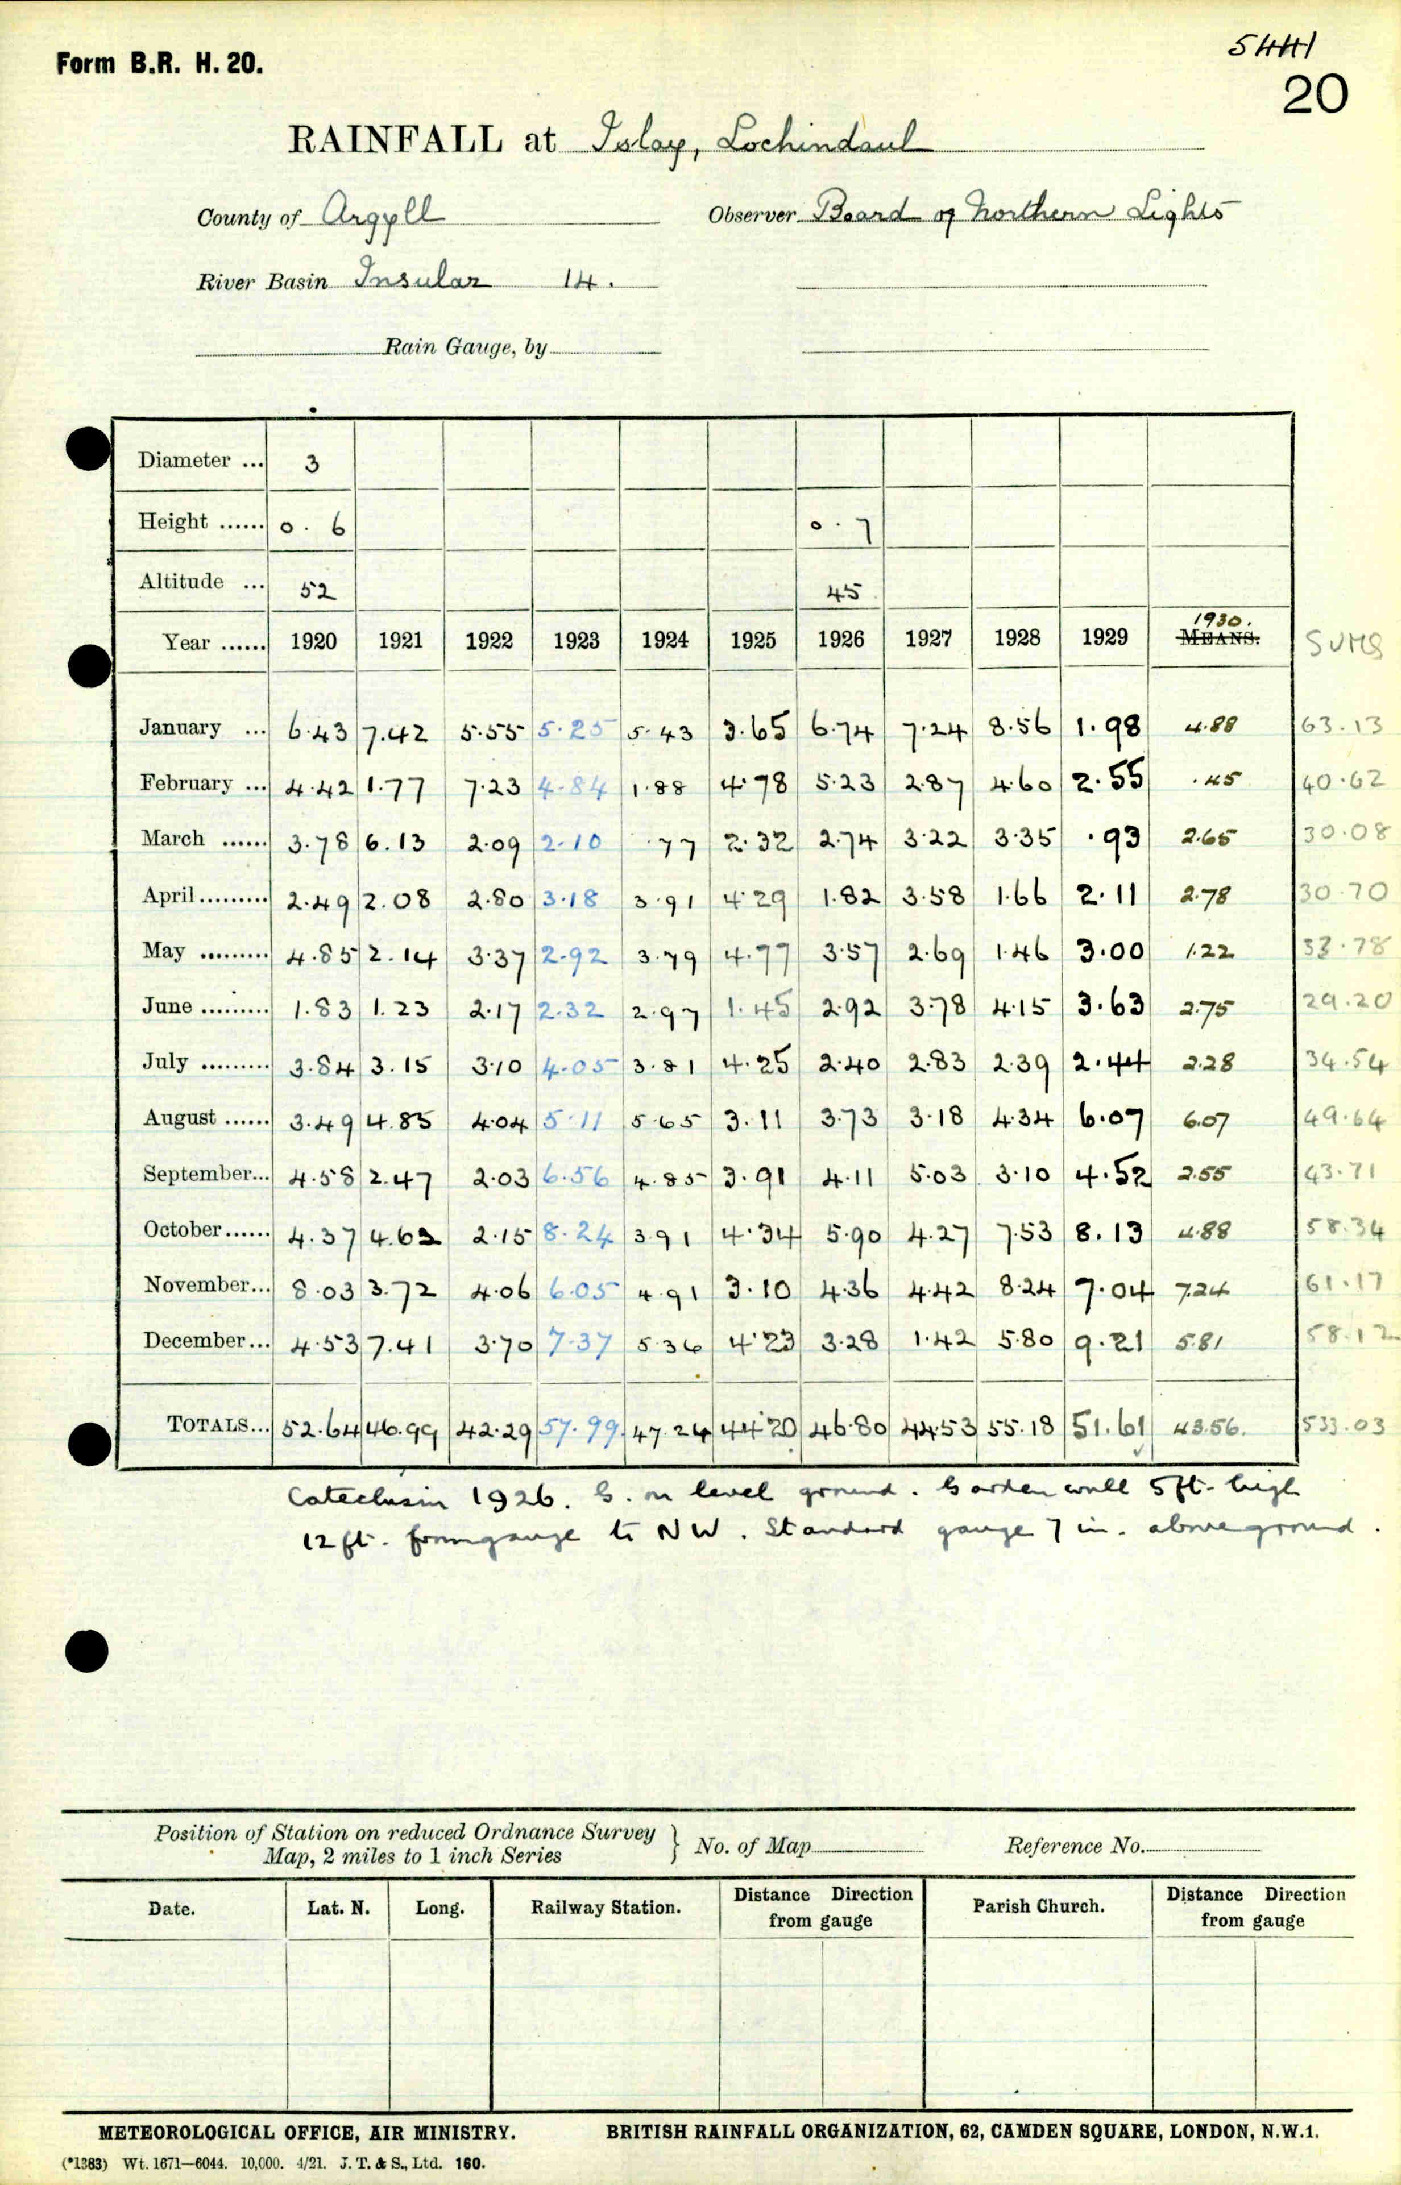 5441
Form B.R. H. 20.
20
RAINFALL at Islay, Lochindaul
County of Argyll Observer Board of Northern Lights
River Basin Insular 14.
Rain Gauge, by
Diameter ... 3
Height ...... 0. 6 0. 7
Altitude ... 52 45
Year ...... 1920 1921 1922 1923 1924 1925 1926 1927 1928 1929 1930. MEANS. SUMS
January ... 6.43 7.42 5.55 5.25 5.43 3.65 6.74 7.24 8.56 1.98 4.88 63.13
February ... 4.42 1.77 7.23 4.84 1.88 4.78 5.23 2.87 4.60 2.55 .45 40.62
March ...... 3.78 6.13 2.09 2.10 .77 2.32 2.74 3.22 3.35 .93 2.65 30.08
April......... 2.49 2.08 2.80 3.18 3.91 4.29 1.82 3.58 1.66 2.11 2.78 30.70
May ......... 4.85 2.14 3.37 2.92 3.79 4.77 3.57 2.69 1.46 3.00 1.22 33.78
June ......... 1.83 1.23 2.17 2.32 2.97 1.45 2.92 3.78 4.15 3.63 2.75 29.20
July ......... 3.84 3.15 3.10 4.05 3.81 4.25 2.40 2.83 2.39 2.44 2.28 34.54
August ...... 3.49 4.85 4.04 5.11 5.65 3.11 3.73 3.18 4.34 6.07 6.07 49.64
September... 4.58 2.47 2.03 6.56 4.85 3.91 4.11 5.03 3.10 4.52 2.55 43.71
October...... 4.37 4.62 2.15 8.24 3.91 4.34 5.90 4.27 7.53 8.13 4.88 58.34
November... 8.03 3.72 4.06 6.05 4.91 3.10 4.36 4.42 8.24 7.04 7.24 61.17
December... 4.53 7.41 3.70 7.37 5.36 4.23 3.28 1.42 5.80 9.21 5.81 58.12
TOTALS... 52.64 46.99 42.29 57.99 47.24 44.20 46.80 44.53 55.18 51.61 43.56. 533.03
Catechism 1926. G. on level ground. Garden wall 5 ft. high
12 ft. from gauge to NW. Standard gauge 7 in. above ground.
Position of Station on reduced Ordnance Survey
Map, 2 miles to 1 inch Series } No. of Map Reference No.
Date. Lat. N. Long. Railway Station. Distance Direction from gauge Parish Church. Distance Direction from gauge
METEOROLOGICAL OFFICE, AIR MINISTRY. BRITISH RAINFALL ORGANIZATION, 62, CAMDEN SQUARE, LONDON, N.W.1.
(*1383) Wt. 1671—6044. 10,000. 4/21. J. T. & S., Ltd. 160.